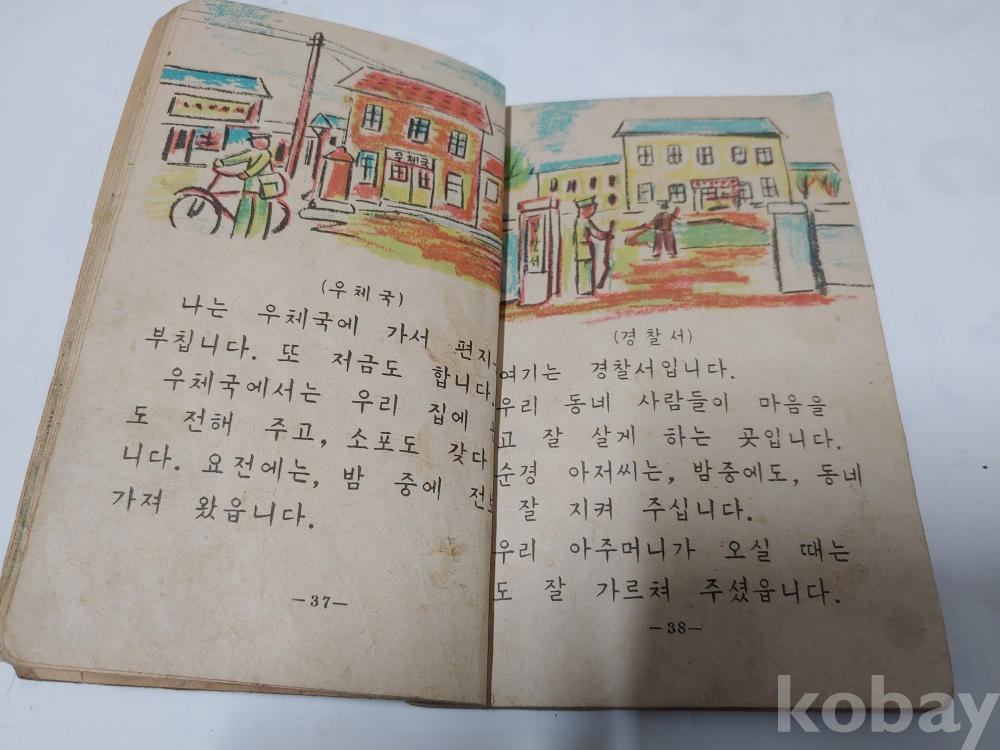 우체국
(우 체 국)
나는 우체국에 가서 편지
부칩니다. 또 저금도 합니다.
우체국에서는 우리 집에
도 전해 주고, 소포도 갖다
니다. 요전에는, 밤 중에
가져 왔읍니다.
—37—
경찰서
(경 찰 서)
여기는 경찰서입니다.
우리 동네 사람들이 마음을
고 잘 살게 하는 곳입니다.
순경 아저씨는, 밤중에도, 동네
잘 지켜 주십니다.
우리 아주머니가 오실 때는
도 잘 가르쳐 주셨읍니다.
—38—
kobay